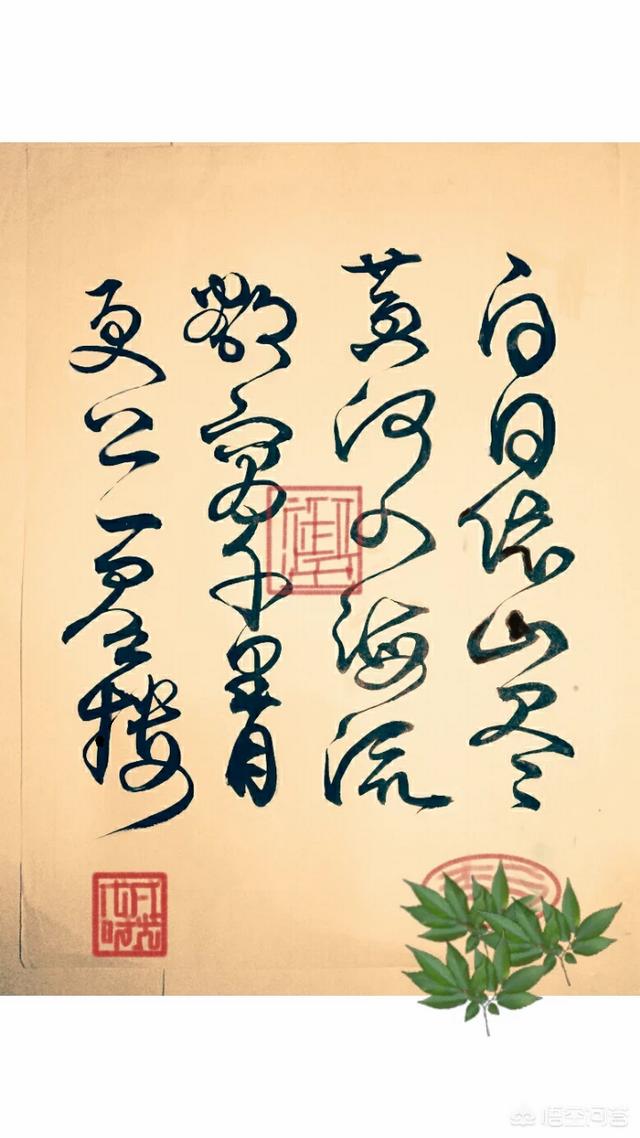 白日依山尽
黄河入海流
欲穷千里目
更上一层楼
悟空问答